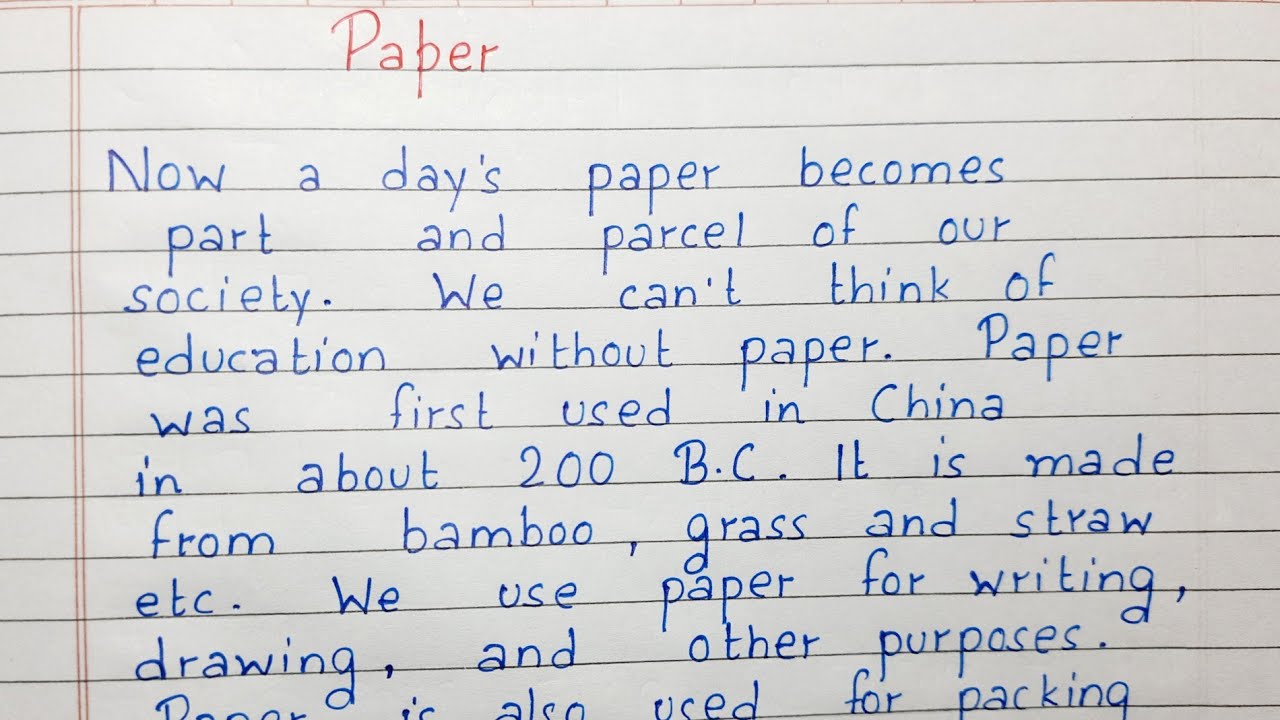 Paper
Now a day's paper becomes
part and parcel of our
society. We can't think of
education without paper. Paper
was first used in China
in about 200 B.C. It is made
from bamboo, grass and straw
etc. We use paper for writing,
drawing, and other purposes.
Paper is also used for packing